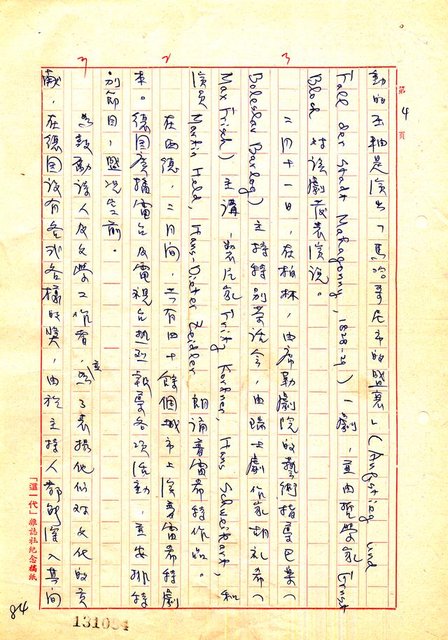 第 4 頁
動的主軸是演出「馬哈哥尼市的盛衰」(Aufstieg und
Fall der Stadt Mahagonny, 1928-29) 一劇,並由哲學家 Ernst
Bloch 對該劇發表演說。
二月十一日,在柏林,由席勒劇院的藝術指導巴樂(
Boleslav Barlog) 主持特別茶話會,由瑞士劇作家胡禮希(
Max Frisch) 主講, Fritz Kortner, Hans Schweikart, 和
演員 Martin Held, Hans-Dieter Zeidler 朗誦布雷希特作品。
在西德,二月間,共有四十餘個城市上演布雷希特劇
本。德國廣播電台及電視台熱烈報導各項活動,並安排特
別節目,盛況空前。
為鼓勵詩人及文學工作者,為了表揚他們對文化的貢
獻,在德國設有各式各樣的獎,由於主持人都深入其間
「這一代」雜誌社紀念稿紙
131094
84